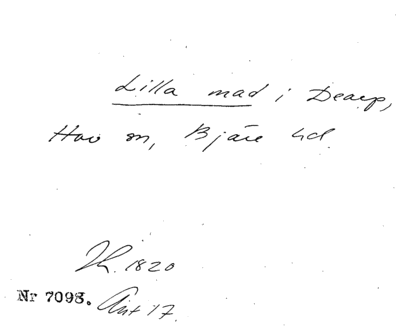 Lilla mad i Dearp,
Hov sn, Bjäre hd.
Th. 1820
Nr 7098. Ant 17.